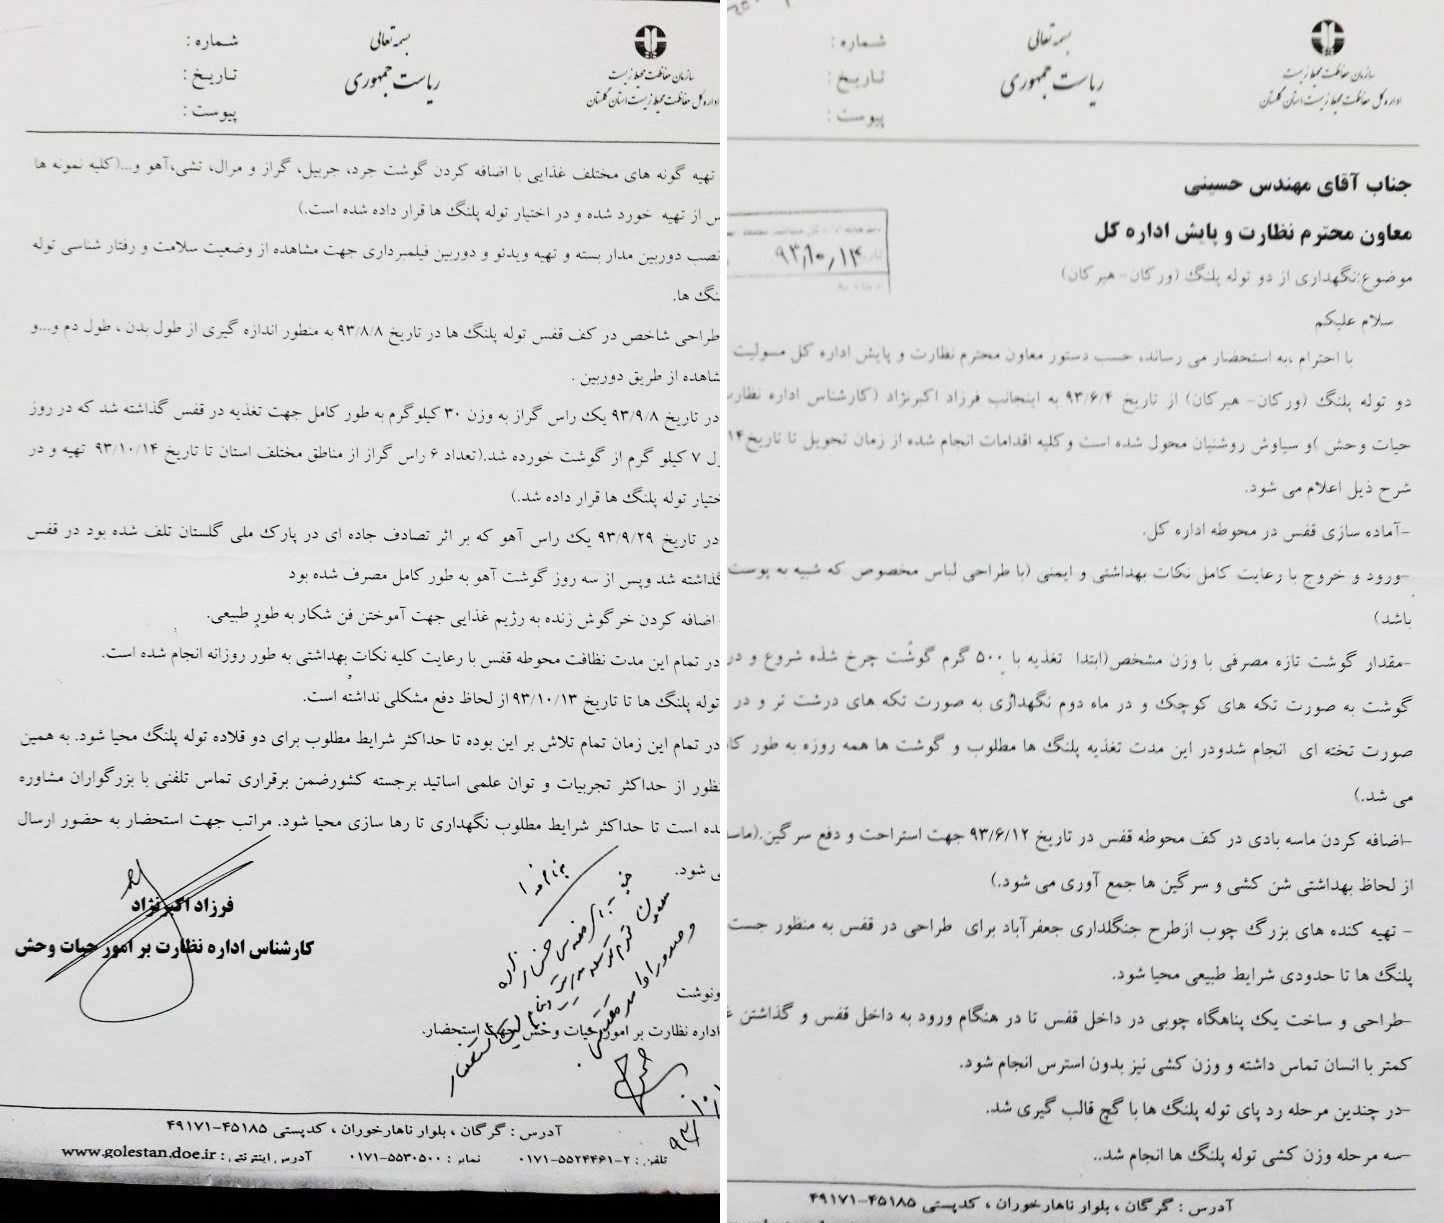 بسمه تعالی
ریاست جمهوری
سازمان حفاظت محیط زیست
اداره کل حفاظت محیط زیست استان گلستان
شماره :
تاریخ :
پیوست :
جناب آقای مهندس حسینی
معاون محترم نظارت و پایش اداره کل
۹۳/۱۰/۱۴
موضوع:نگهداری از دو توله پلنگ (ورکان- هیرکان)
سلام علیکم
با احترام ،به استحضار می رساند، حسب دستور معاون محترم نظارت و پایش اداره کل مسولیت
دو توله پلنگ (ورکان- هیرکان) از تاریخ ۹۳/۶/۴ به اینجانب فرزاد اکبرنژاد (کارشناس اداره نظارت
حیات وحش )و سیاوش روشنیان محول شده است و کلیه اقدامات انجام شده از زمان تحویل تا تاریخ ۱۴
شرح ذیل اعلام می شود.
-آماده سازی قفس در محوطه اداره کل.
-ورود و خروج با رعایت کامل نکات بهداشتی و ایمنی (با طراحی لباس مخصوص که شبیه به پوست
باشد)
-مقدار گوشت تازه مصرفی با وزن مشخص(ابتدا تغذیه با ۵۰۰ گرم گوشت چرخ شده شروع و در
گوشت به صورت تکه های کوچک و در ماه دوم نگهداری به صورت تکه های درشت تر و در
صورت تخته ای انجام شدودر این مدت تغذیه پلنگ ها مطلوب و گوشت ها همه روزه به طور
می شد.)
-اضافه کردن ماسه بادی در کف محوطه قفس در تاریخ ۹۳/۶/۱۲ جهت استراحت و دفع سرگین.(
از لحاظ بهداشتی شن کشی و سرگین ها جمع آوری می شود.)
- تهیه کنده های بزرگ چوب ازطرح جنگلداری جعفرآباد برای طراحی در قفس به منظور جست
پلنگ ها تا حدودی شرایط طبیعی محیا شود.
-طراحی و ساخت یک پناهگاه چوبی در داخل قفس تا در هنگام ورود به داخل قفس و گذاشتن
کمتر با انسان تماس داشته و وزن کشی نیز بدون استرس انجام شود.
-در چندین مرحله رد پای توله پلنگ ها با گچ قالب گیری شد.
-سه مرحله وزن کشی توله پلنگ ها انجام شد..
آدرس : گرگان ، بلوار ناهارخوران ، کدپستی ۴۵۱۸۵-۴۹۱۷۱
بسمه تعالی
ریاست جمهوری
سازمان حفاظت محیط زیست
اداره کل حفاظت محیط زیست استان گلستان
شماره :
تاریخ :
پیوست :
تهیه گونه های مختلف غذایی با اضافه کردن گوشت جرد، جربیل، گراز و مرال، تشی،آهو و...(کلیه نمونه ها
از تهیه خورد شده و در اختیار توله پلنگ ها قرار داده شده است.)
نصب دوربین مدار بسته و تهیه ویدئو و دوربین فیلمبرداری جهت مشاهده از وضعیت سلامت و رفتار شناسی توله
ها.
طراحی شاخص در کف قفس توله پلنگ ها در تاریخ ۹۳/۸/۸ به منظور اندازه گیری از طول بدن ، طول دم و...و
از طریق دوربین .
در تاریخ ۹۳/۹/۸ یک راس گراز به وزن ۳۰ کیلوگرم به طور کامل جهت تغذیه در قفس گذاشته شد که در روز
۷ کیلو گرم از گوشت خورده شد.(تعداد ۶ راس گراز از مناطق مختلف استان تا تاریخ ۹۳/۱۰/۱۴ تهیه و در
ختیار توله پلنگ ها قرار داده شد.)
در تاریخ ۹۳/۹/۲۹ یک راس آهو که بر اثر تصادف جاده ای در پارک ملی گلستان تلف شده بود در قفس
گذاشته شد وپس از سه روز گوشت آهو به طور کامل مصرف شده بود
اضافه کردن خرگوش زنده به رژیم غذایی جهت آموختن فن شکار به طور طبیعی.
در تمام این مدت نظافت محوطه قفس با رعایت کلیه نکات بهداشتی به طور روزانه انجام شده است.
توله پلنگ ها تا تاریخ ۹۳/۱۰/۱۳ از لحاظ دفع مشکلی نداشته است.
در تمام این زمان تمام تلاش بر این بوده تا حداکثر شرایط مطلوب برای دو قلاده توله پلنگ محیا شود. به همین
نظور از حداکثر تجربیات و توان علمی اساتید برجسته کشورضمن برقراری تماس تلفنی با بزرگواران مشاوره
ده است تا حداکثر شرایط مطلوب نگهداری تا رها سازی محیا شود. مراتب جهت استحضار به حضور ارسال
شود.
فرزاد اکبرنژاد
کارشناس اداره نظارت بر امور حیات وحش
ونوشت
اداره نظارت بر امور حیات وحش جهت استحضار.
آدرس : گرگان ، بلوار ناهارخوران ، کدپستی ۴۵۱۸۵-۴۹۱۷۱
تلفن : ۲-۵۵۲۴۴۶۱-۰۱۷۱ نمابر : ۵۵۳۰۵۰۰-۰۱۷۱ آدرس اینترنتی : www.golestan.doe.ir